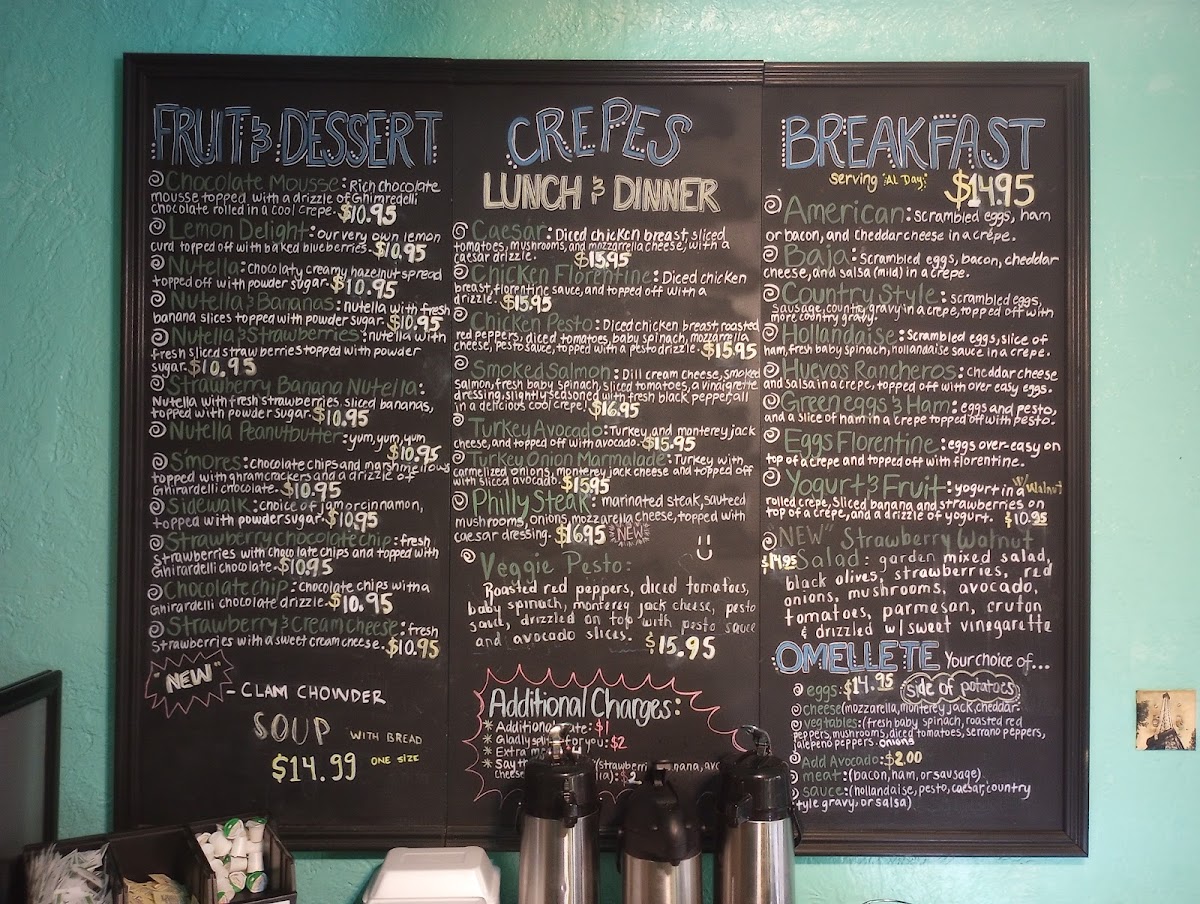 FRUIT & DESSERT
Chocolate Mousse: Rich chocolate
mousse topped with a drizzle of Ghimredelli
chocolate rolled in a cool crepe. $10.95
Lemon Delight: our very own lemon
curd topped off with baked blueberries. $10.95
Nutella: chocolaty creamy hazelnut spread
topped off with powder sugar. $10.95
Nutella & Bananas: nutella with fresh
banana slices topped with powder sugar. $10.95
Nutella & Strawberries: nutella with
fresh sliced strawberries topped with powder
sugar. $10.95
Strawberry Banana Nutella:
Nutella with fresh strawberries, sliced bananas,
topped with powder sugar. $10.95
Nutella Peanutbutter: yum, yum, yum
$10.95
S'mores: chocolate chips and marshmellows
topped with ghramcrackers and a drizzle of
Ghirardelli chocolate. $10.95
Sidewalk: choice of jam or cinnamon,
topped with powder sugar. $10.95
Strawberry chocolate chip: fresh
strawberries with chocolate chips and topped with
Ghirardelli chocolate. $10.95
Chocolate chip: chocolate chips with a
Ghirardelli chocolate drizzle. $10.95
Strawberry & Cream Cheese: fresh
strawberries with a sweet cream cheese. $10.95
"NEW"
- CLAM CHOWDER
SOUP WITH BREAD
$14.99 ONE SIZE
CREPES
LUNCH & DINNER
Caesar: Diced chicken breast, sliced
tomatoes, mushrooms, and mozzarrella cheese, with a
caesar drizzle. $15.95
Chicken Florentine: Diced chicken
breast, florentine sauce, and topped off with a
drizzle. $15.95
Chicken Pesto: Diced chicken breast, roasted
red peppers, diced tomatoes, baby spinach, mozzarella
cheese, pesto sauce, topped with a pesto drizzle. $15.95
Smoked Salmon: Dill cream cheese, smoked
salmon, fresh baby spinach, sliced tomatoes, a vinaigrette
dressing, slightly seasoned with fresh black pepper, all
in a delicious cool crepe! $16.95
Turkey Avocado: Turkey, and monterey jack
cheese, and topped off with avocado. $15.95
Turkey Onion Marmalade: Turkey with
carmelized onions, monterey jack cheese and topped off
with sliced avocado. $15.95
Philly Steak: marinated steak, sauteed
mushrooms, onions, mozzarella cheese, topped with
caesar dressing. $16.95 "NEW"
Veggie Pesto:
Roasted red peppers, diced tomatoes,
baby spinach, monterey jack cheese, pesto
sauce, drizzled on top with pesto sauce
and avocado slices. $15.95
Additional Charges:
* Additional ate: $1
* Gladly spli for you: $2
* Extra m
* Say th (strawberr nana, avo
cheese ia): $2
BREAKFAST
serving "Al Day" $14.95
American: scrambled eggs, ham
or bacon, and cheddar cheese in a crepe.
Baja: scrambled eggs, bacon, cheddar
cheese, and salsa (mild) in a crepe.
Country Style: scrambled eggs,
sausage, county gravy in a crepe, topped off with
more country gravy.
Hollandaise: scrambled eggs, slice of
ham, fresh baby spinach, hollandaise sauce in a crepe.
Huevos Rancheros: cheddar cheese
and salsa in a crepe, topped off with over easy eggs.
Green eggs & Ham: eggs and pesto,
and a slice of ham in a crepe topped off with pesto.
Eggs Florentine: eggs over-easy on
top of a crepe and topped off with florentine.
Yogurt & Fruit: yogurt in a w/ walnut
rolled crepe, sliced banana and strawberries on
top of a crepe, and a drizzle of yogurt. $10.95
"NEW" Strawberry Walnut
$14.95 Salad: garden mixed salad,
black olives, strawberries, red
onions, mushrooms, avocado,
tomatoes, parmesan, cruton
& drizzled w/ sweet vinegarette
OMELLETE Your choice of...
eggs: $14.95 side of potatoes
cheese (mozzarella, monterey jack, cheddar.
vegtables: (fresh baby spinach, roasted red
peppers, mushrooms, diced tomatoes, serrano peppers,
jalepeno peppers. onions
Add Avocado: $2.00
meat: (bacon, ham, or sausage)
sauce: (hollandaise, pesto, caesar, country
style gravy, or salsa)